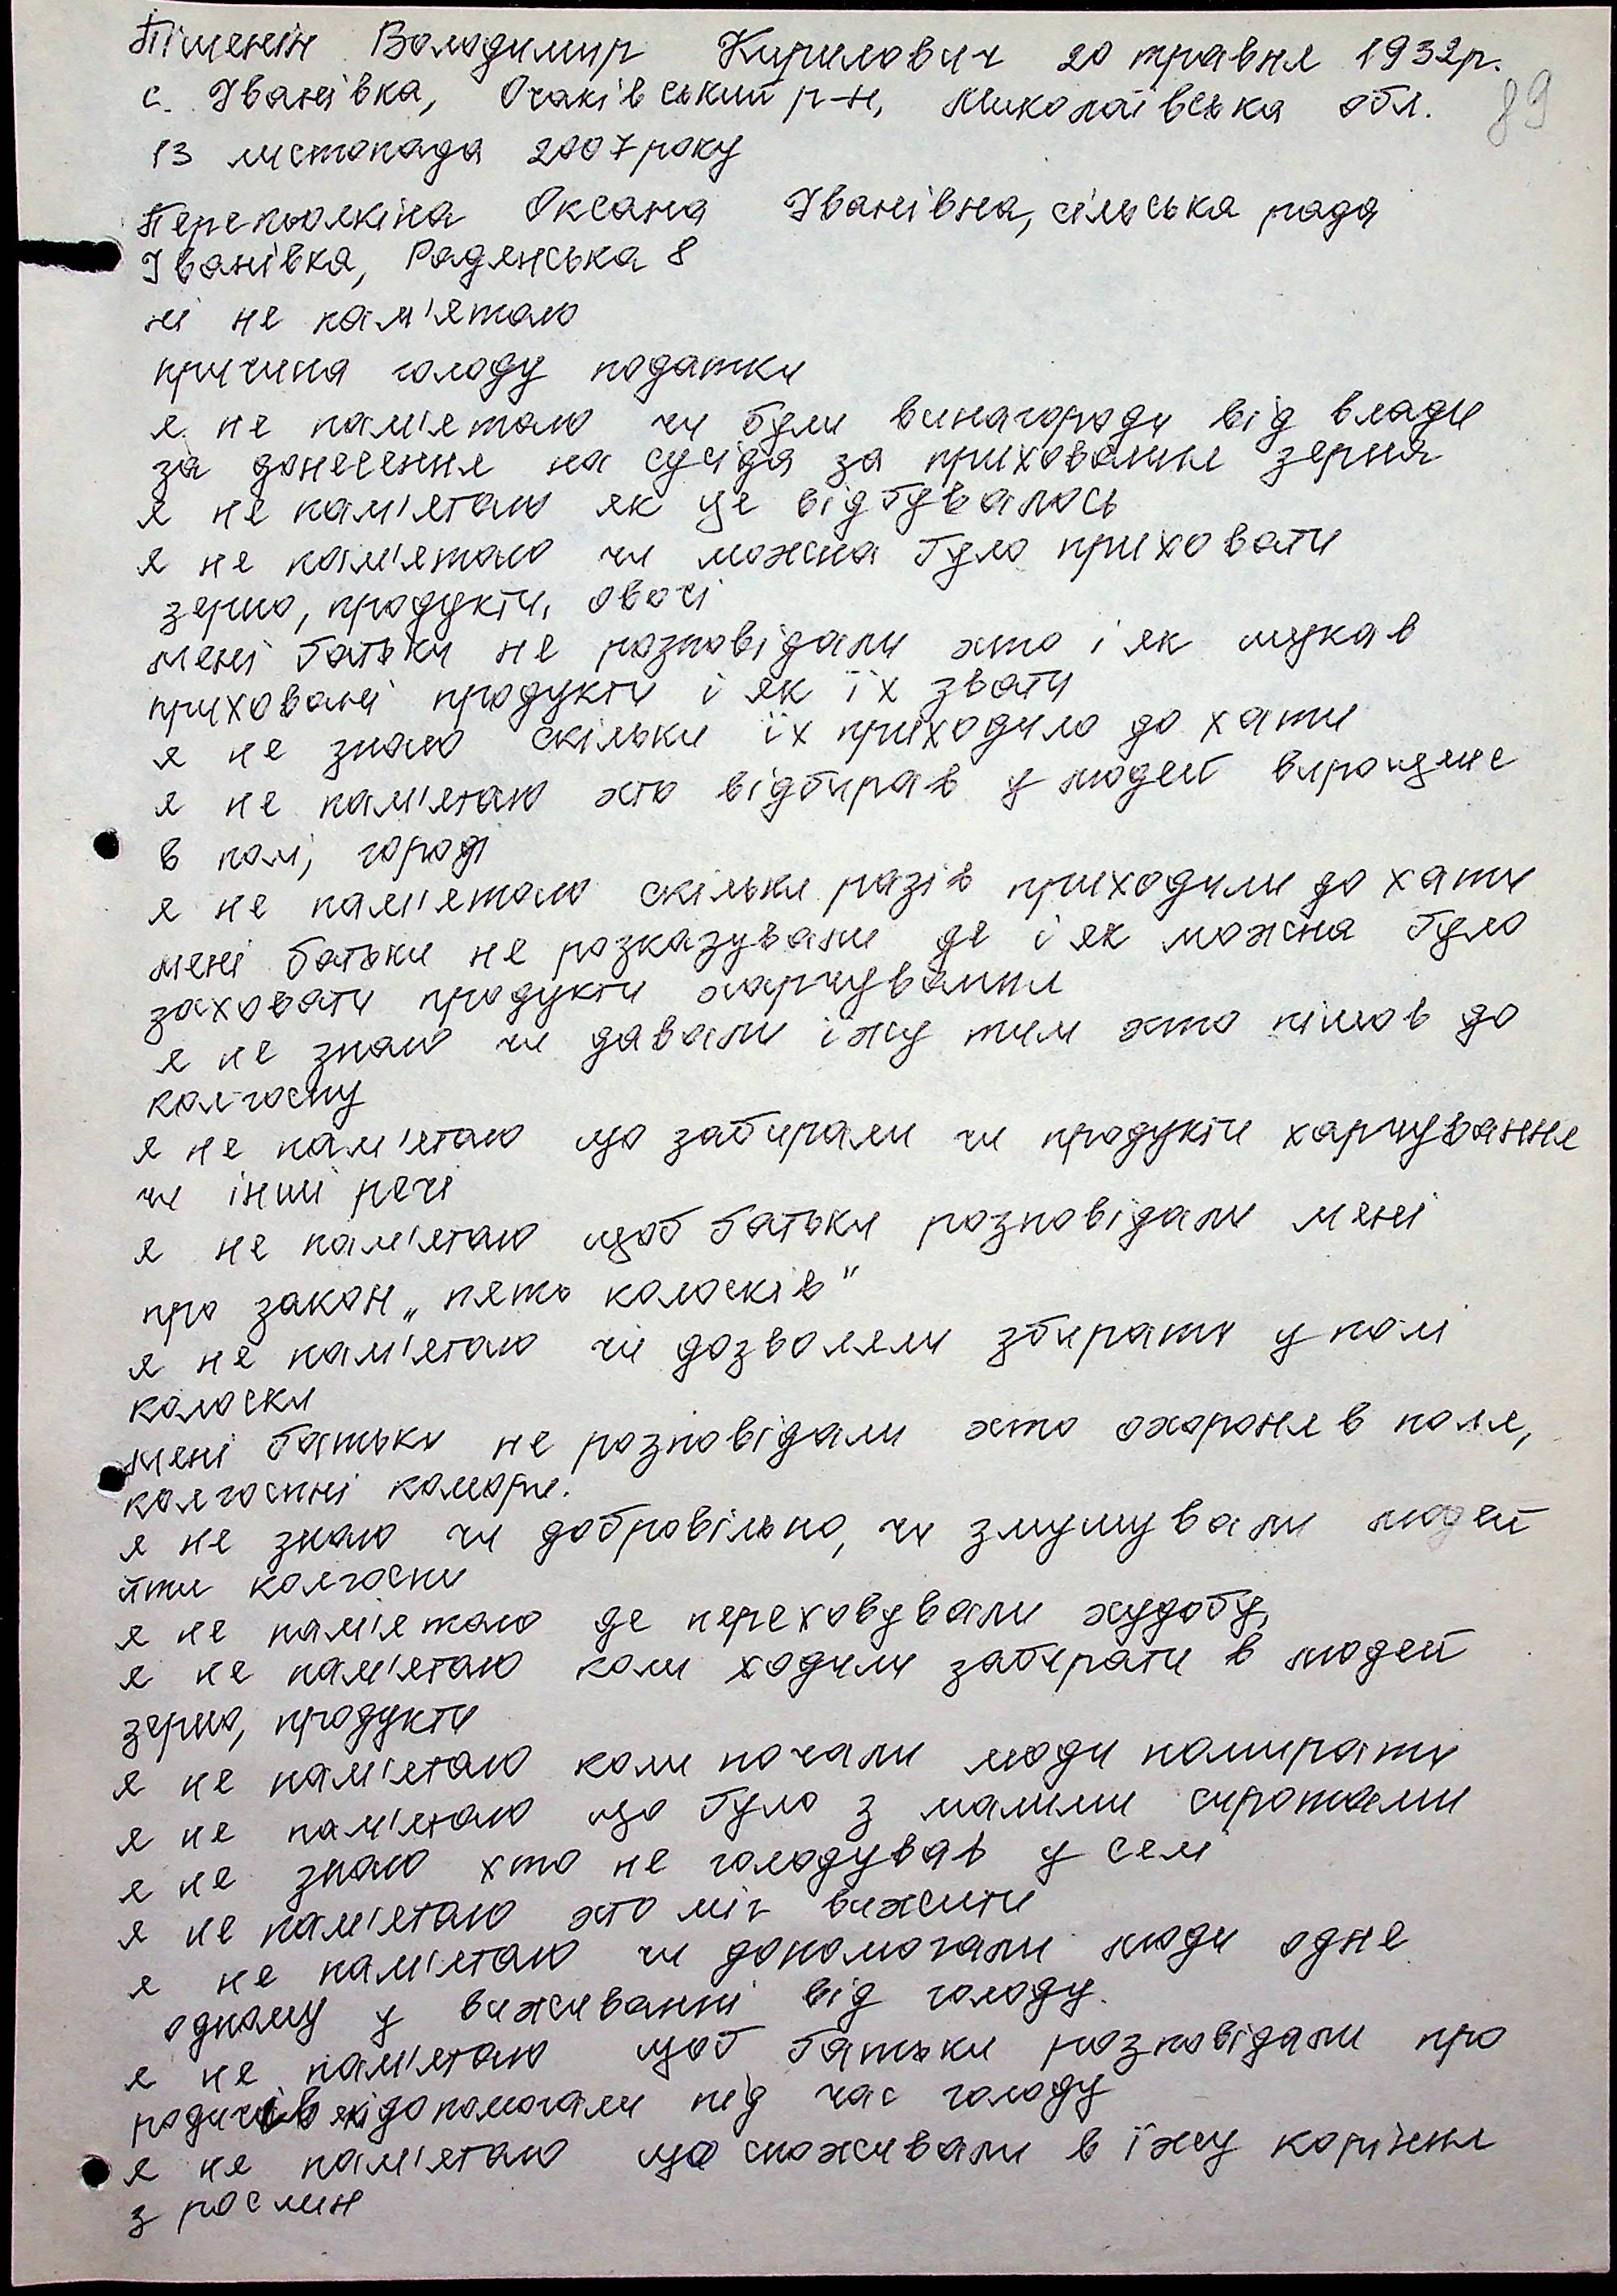 Піменін Володимир Кирилович 20 травня 1932р.
с. Іванівка, Очаківський р-н, Миколаївська обл.
89
13 листопада 2007 року
Перепьолкіна Оксана Іванівна, сільська рада
Іванівка, Радянська 8
ні не пам'ятаю
причина голоду податки
я не пам'ятаю чи були винагороди від влади
за донесення на сусіда за приховання зерня
я не пам'ятаю як це відбувалось
я не пам'ятаю чи можна було приховати
зерно, продукти, овочі
мені батьки не розповідали хто і як шукав
приховані продукти і як їх звати
я не знаю скільки їх приходило до хати
я не пам'ятаю хто відбирав у людей вирощене
в полі, городі
я не пам'ятаю скільки разів приходили до хати
мені батьки не розказували де і як можна було
заховати продукти харчування
я не знаю чи давали їжу тим хто пішов до
колгоспу
я не пам'ятаю що забирали чи продукти харчування
чи інші речі
я не пам'ятаю щоб батьки розповідали мені
про закон „пять колосків"
я не пам'ятаю чи дозволяли збирати у полі
колоски
мені батьки не розповідали хто охороняв поля,
колгоспні комори.
я не знаю чи добровільно, чи змушували людей
йти колгоспи
я не пам'ятаю де переховували худобу,
я не пам'ятаю коли ходили забирати в людей
зерно, продукти
я не пам'ятаю коли почали люди помирати
я не пам'ятаю що було з малими сиротами
я не знаю хто не голодував у селі
я не пам'ятаю хто міг вижити
я не пам'ятаю чи допомогали люди одне
одному у виживанні від голоду.
я не пам'ятаю щоб батьки розповідали про
родичів які допомогали під час голоду
я не пам'ятаю що споживали в їжу коріння
з рослин